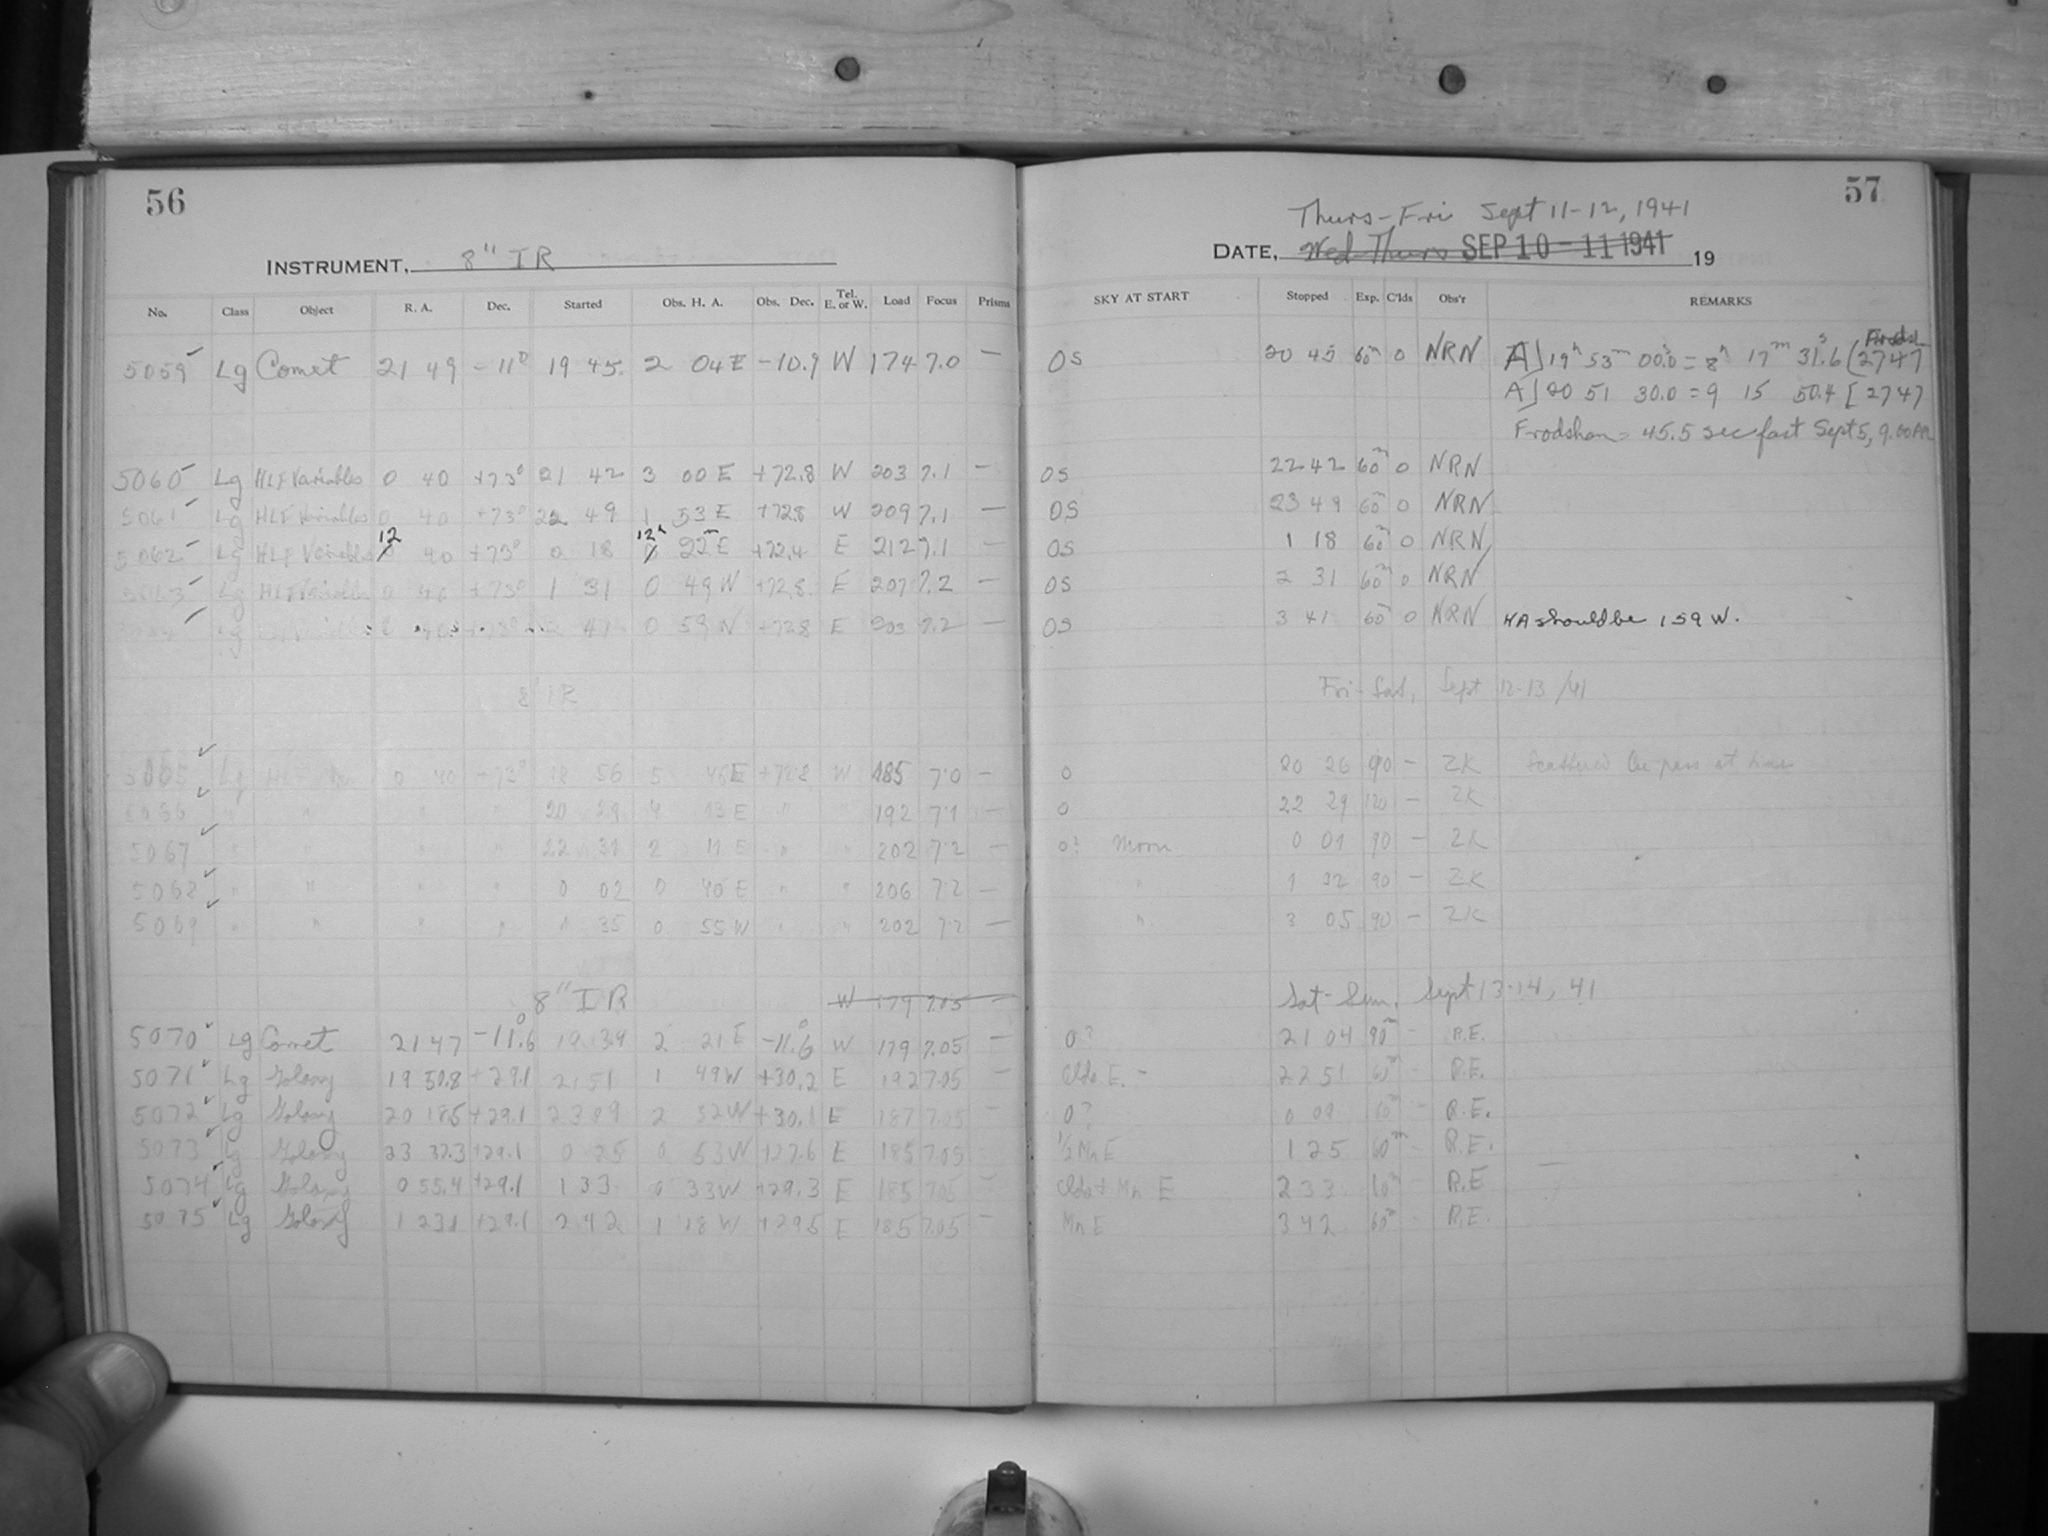 56
INSTRUMENT, 8" IR
No. Class Object R. A. Dec. Started Obs. H. A. Obs. Dec. Tel. E. or W. Load Focus Prisms
5059 Lg Comet 21 49 -11° 19 45. 2 04E -10.9 W 174 7.0 —
5060 Lg HLF Variables 0 40 +73° 21 42 3 00 E +72.8 W 203 7.1 —
5061 Lg HLF Variables 0 40 +73° 22 49 1 53 E +72.8 W 209 7.1 —
5062 Lg HLF Variables 12 40 +73° 0 18 12h 22m E +72.4 E 212 7.1 —
5063 Lg HLF Variables 0 40 +73° 1 31 0 49 W +72.8 E 207 7.2 —
Lg 41 0 59 W +72.8 E 203 7.2 —
8" IR
5065 Lg 0 40 +73° 18 56 5 46E +72.8 W 185 7.0 —
" " " " 20 29 4 13 E " " 192 7.1 —
5067 " " " " 22 31 2 11 E " " 202 7.2 —
5068 " " " " 0 02 0 40 E " " 206 7.2 —
5069 " " " " 1 35 0 55 W " " 202 7.2 —
8" IR W 179 7.05
5070 Lg Comet 21 47 -11.6° 19 34 2 21 E -11.6° W 179 7.05 —
5071 Lg Galaxy 19 50.8 +29.1 21 51 1 49W +30.2 E 192 7.05 —
5072 Lg Galaxy 20 18.5 +29.1 23 09 2 32W +30.1 E 187 7.05 —
5073 Lg Galaxy 23 32.3 +29.1 0 25 0 53W +27.6 E 185 7.05 —
5074 Lg Galaxy 0 55.4 +29.1 1 33 0 33W +29.3 E 185 7.05 —
5075 Lg Galaxy 1 23.1 +29.1 2 42 1 18 W +29.5 E 185 7.05 —
57
Thurs-Fri Sept 11-12, 1941
DATE, Wed-Thurs SEP 10-11 1941 19
SKY AT START Stopped Exp. C'lds Obs'r REMARKS
OS 20 45 60m 0 NRN A] 19h 53m 00.0s = 8h 17m 31.6s (2747 Frodsh
A] 20 51 30.0 = 9 15 50.4 [2747
Frodsham = 45.5 sec fast Sept 5, 9.00AM
OS 22 42 60m 0 NRN
OS 23 49 60m 0 NRN
OS 1 18 60m 0 NRN
OS 2 31 60m 0 NRN
OS 3 41 60m 0 NRN HA should be 1 59 W.
Fri-Sat, Sept 12-13/41
0 20 26 90 — ZK Scattered at
0 22 29 120 — ZK
0? Moon 0 01 90 — ZK
" 1 32 90 — ZK
" 3 05 90 — ZK
Sat-Sun, Sept 13-14, 41
0? 21 04 90m - R.E.
Clds E. - 22 51 60m - R.E.
0? 0 09 60m - R.E.
1/2 Mn E 1 25 60m - R.E.
Clds + Mn E 2 33 60m - R.E
Mn E 3 42 60m - R.E.